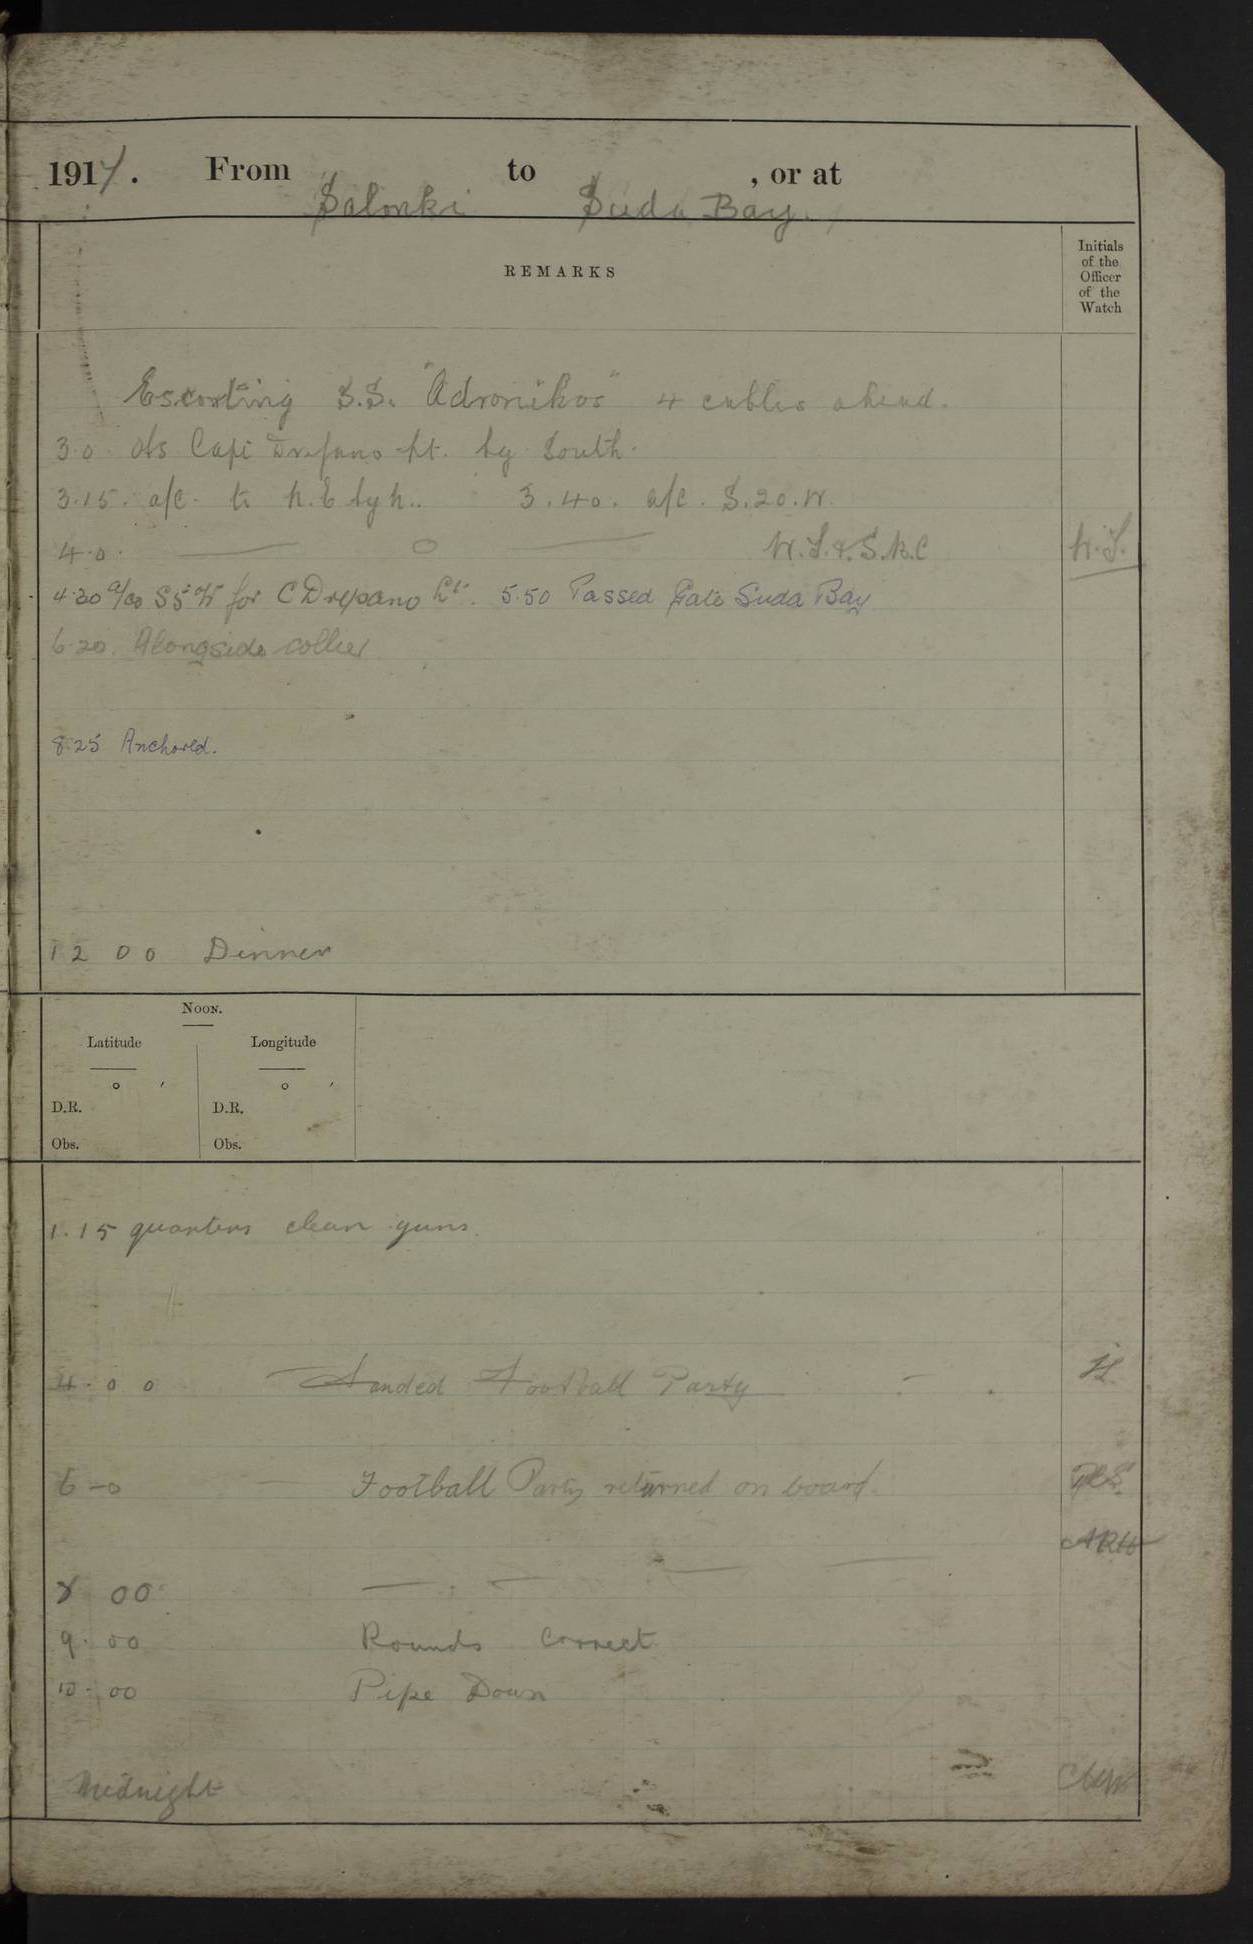 1917. From Salonki to Suda Bay. , or at
REMARKS
Initials of the Officer of the Watch
Escorting S.S. "Adronikos" 4 cables ahead.
3.0. obs Cape Drepano -ht. by South.
3.15. a/c. to N.E by N.. 3.40. a/c. S.20.W.
4.0. — o — W.S.&.S.B.C W.S.
4.30 a/co S5°W for C Drepano Lt. 5.50 Passed Gate Suda Bay
6.20. Alongside collier
8.25 Anchored.
12 00 Dinner
NOON.
Latitude Longitude
° ′ ° ′
D.R. D.R.
Obs. Obs.
1.15 quarters clean guns.
4.00 Landed Football Party
6-0 — Football Party returned on board.
ARH
8 00
9.00 Rounds Correct
10-00 Pipe Down
Midnight